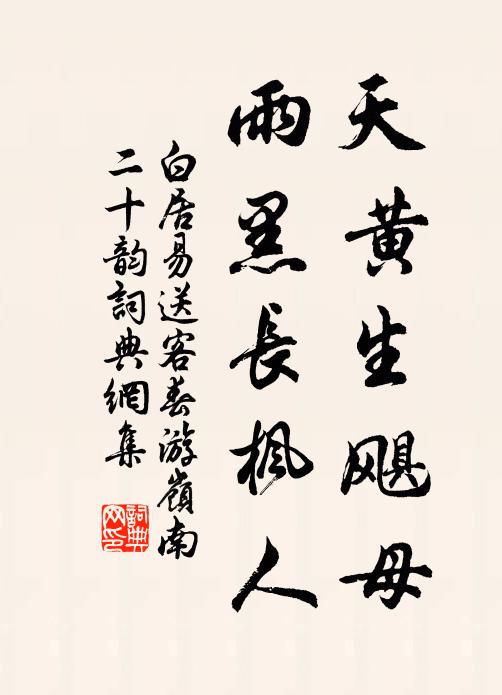 天黄生飓母
雨黑長楓人
白居易送客春游嶺南
二十韵詞典網集
詞典
网印